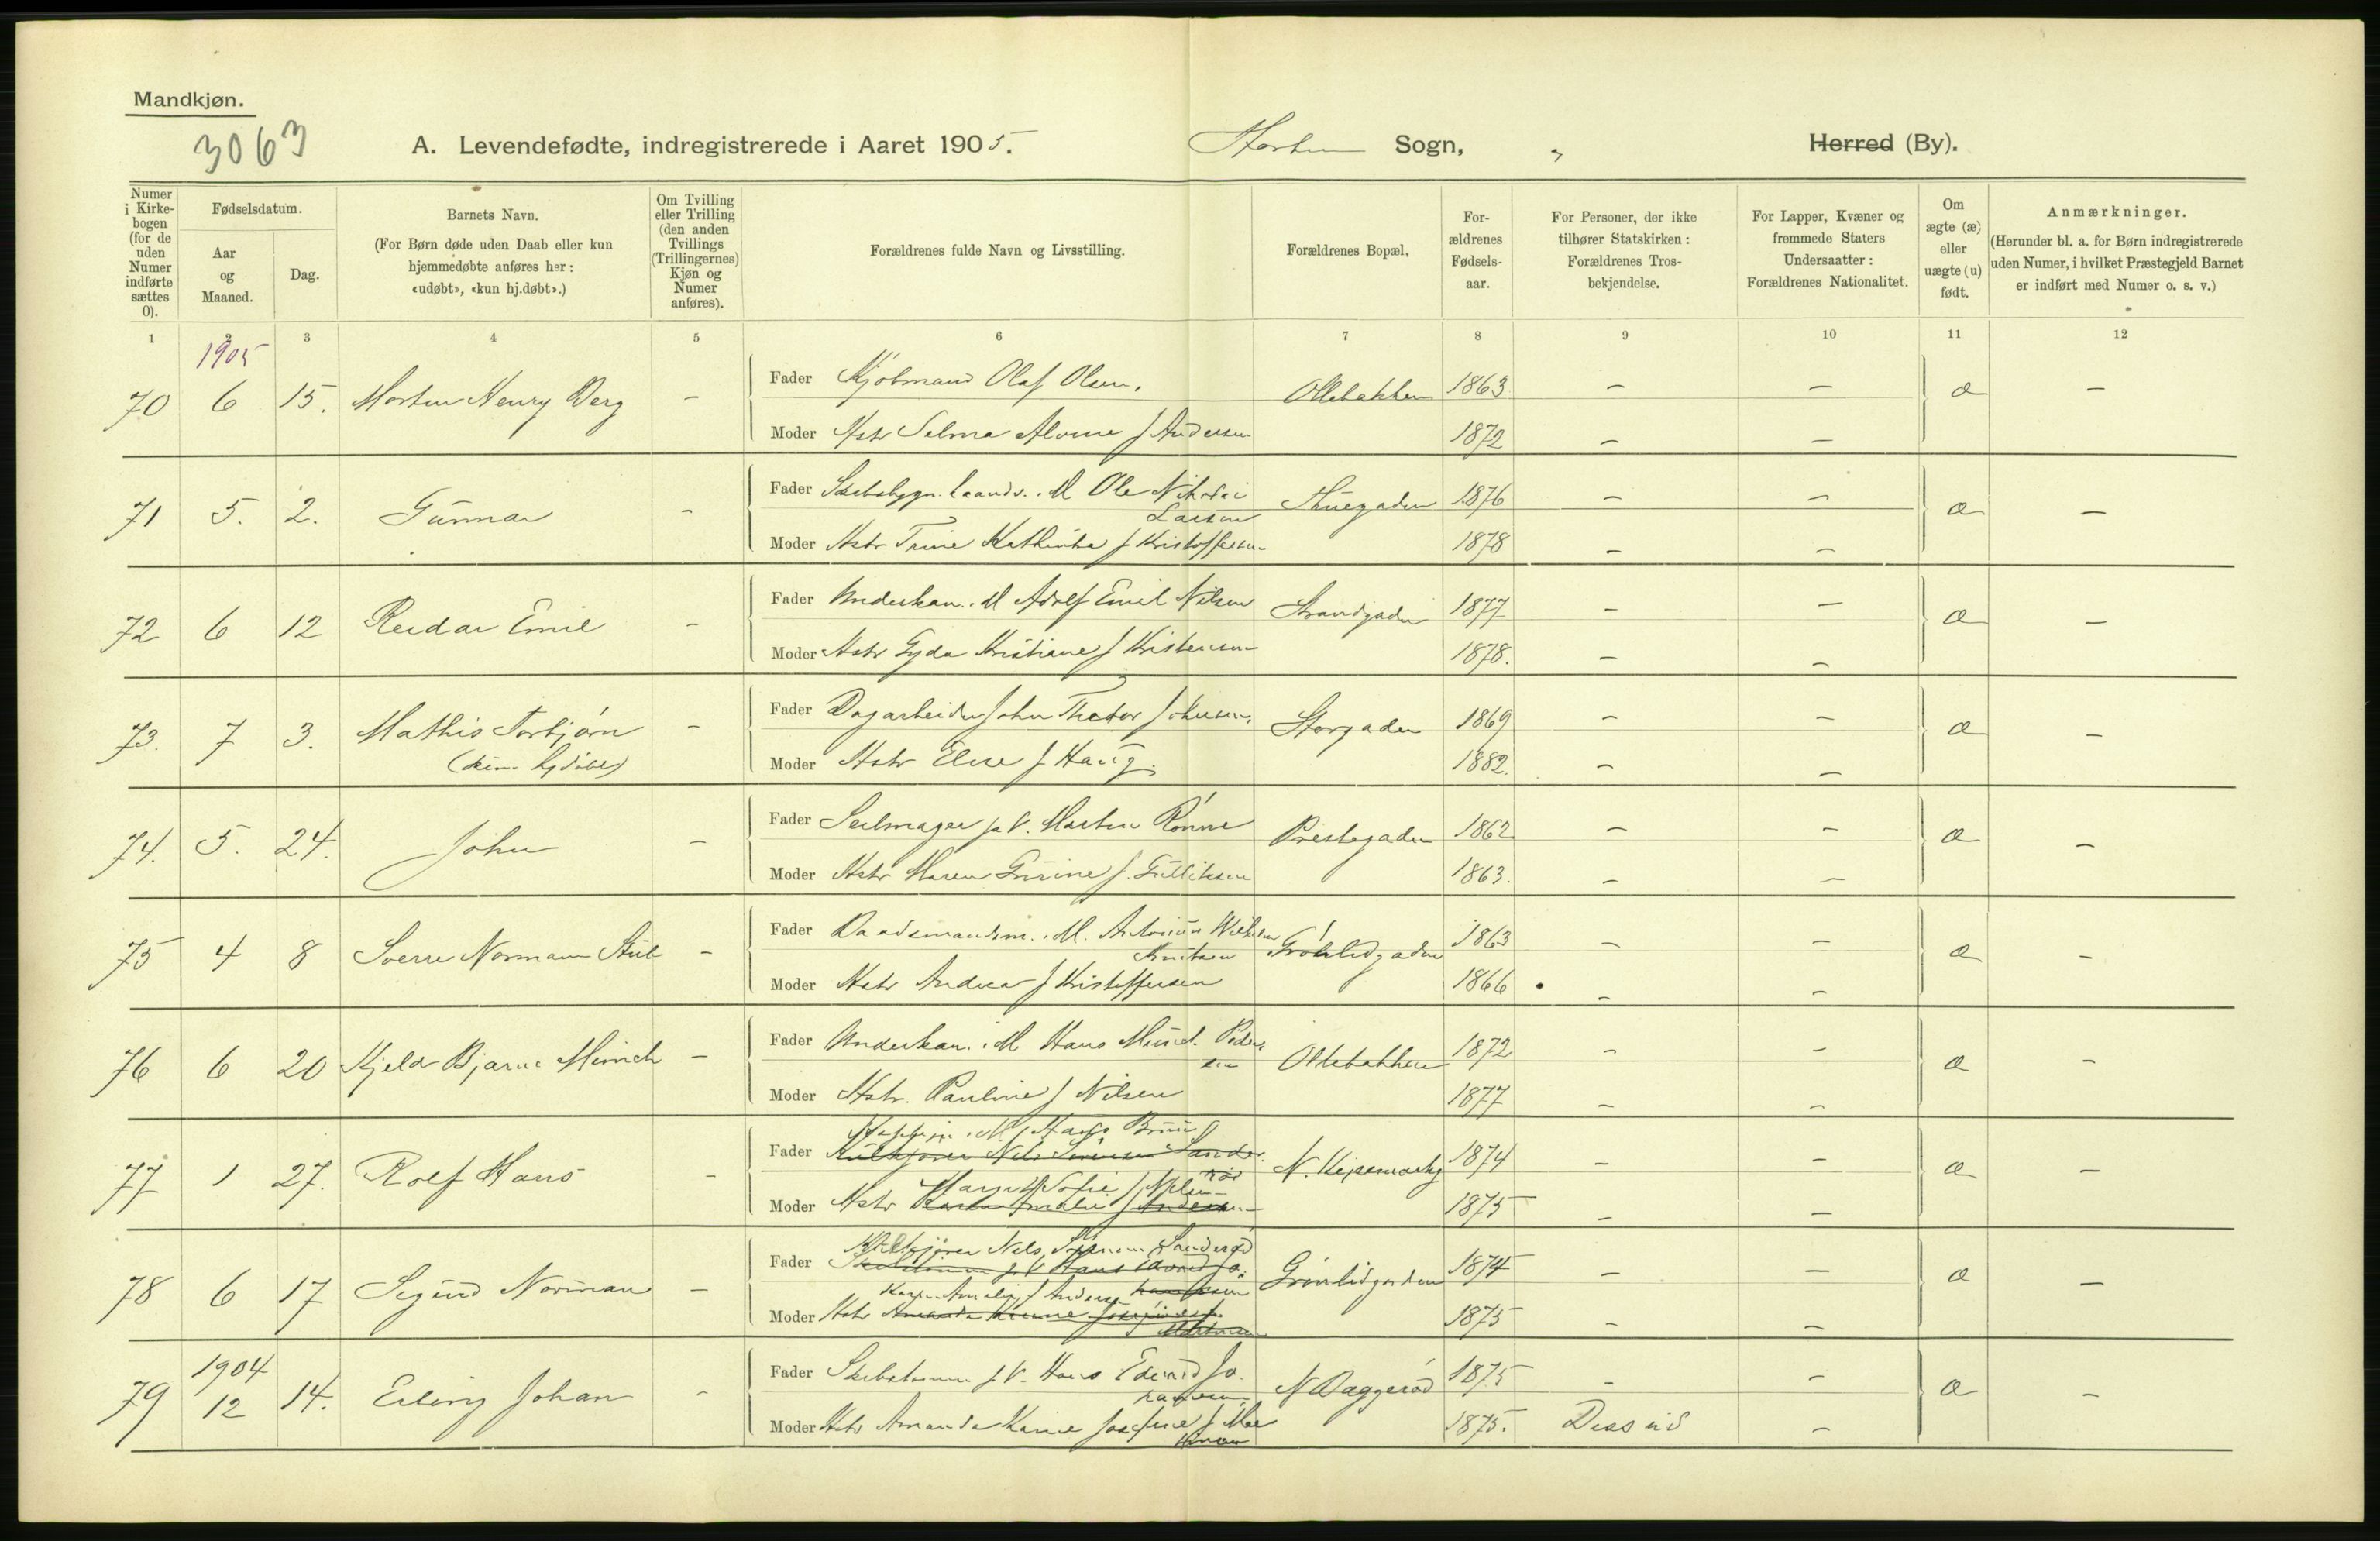 Mandkjøn.
3063
A. Levendefødte, indregistrerede i Aaret 1905. Horten Sogn, „ Herred (By).
Numer i Kirkebogen (for de uden Numer indførte sættes 0).
Fødselsdatum.
Aar og Maaned.
Dag.
Barnets Navn.
(For Børn døde uden Daab eller kun hjemmedøbte anføres her: «udøbt», «kun hj.døbt».)
Om Tvilling eller Trilling (den anden Tvillings (Trillingernes) Kjøn og Numer anføres).
Forældrenes fulde Navn og Livsstilling.
Forældrenes Bopæl,
Forældrenes Fødselsaar.
For Personer, der ikke tilhører Statskirken: Forældrenes Trosbekjendelse.
For Lapper, Kvæner og fremmede Staters Undersaatter: Forældrenes Nationalitet.
Om ægte (æ) eller uægte (u) født.
Anmærkninger.
(Herunder bl. a. for Børn indregistrerede uden Numer, i hvilket Præstegjeld Barnet er indført med Numer o. s. v.)
1 2 3 4 5 6 7 8 9 10 11 12
1905
70 6 15. Morten Henry Berg - Fader Kjøbmand Olaf Olsen. Ollebakken 1863 - - æ -
Moder Hstr Selma Alvine f Andersen 1872 - -
71 5. 2. Gunnar - Fader Skibsbygn. haandv. i M Ole Nikolai Larsen Thuegaden 1876 - - æ -
Moder Hstr Trine Kathinka f Kristoffersen 1878 - -
72 6 12 Reidar Emil - Fader Underkan. i M Adolf Emil Nilsen Strandgaden 1877 - - æ -
Moder Hstr Gyda Kristiane f Kristensen 1878. - -
73. 7 3. Mathis Torbjørn - Fader Dagarbeider John Theodor Johnsen. Storgaden 1869 - - æ -
(kun hjdøbt)
Moder Hstr Elise f Haug. 1882. - -
74. 5. 24. John - Fader Seilmager p V. Morten Rønne Prestegaden 1862 - - æ -
Moder Hstr Maren Gurine f. Gulliksen 1863. - -
75 4 8 Sverre Normann Stub - Fader Baadsmandsm. i M. Antonius Wilhelm Knutsen Grønligaden 1863 - - æ -
Moder Hstr Andrea f Kristoffersen 1866 - -
76 6 20 Kjeld Bjarne Munch - Fader Underkan. i M Hans Pedersen Ollebakken 1872 - - æ -
Moder Hstr. Pauline f Nilsen 1877 - -
77 1 27. Rolf Hans - Fader i M Hans Bruu 1874 - - æ -
Kulkjører Nils Sørensen Sanderød
Margit Sofie f Nilsen
Moder Hstr Karen Amalie f Andersen 1875 - -
78 6 17 Sigurd Norman - Fader Kulkjører Nils Sørensen Sanderød Grønligaden 1874 - - æ -
Skibstømm p V Hans Edvard Johannesen
Karen Amalie f Andersen
Moder Hstr Amanda Karine Josefine f. 1875 - -
1904
79 12 14. Erling Johan - Fader Skibstømm p V. Hans Edvard Johannesen N Baggerød 1875 - - æ -
Moder Hstr Amanda Karine Josefine f 1875. Diss -